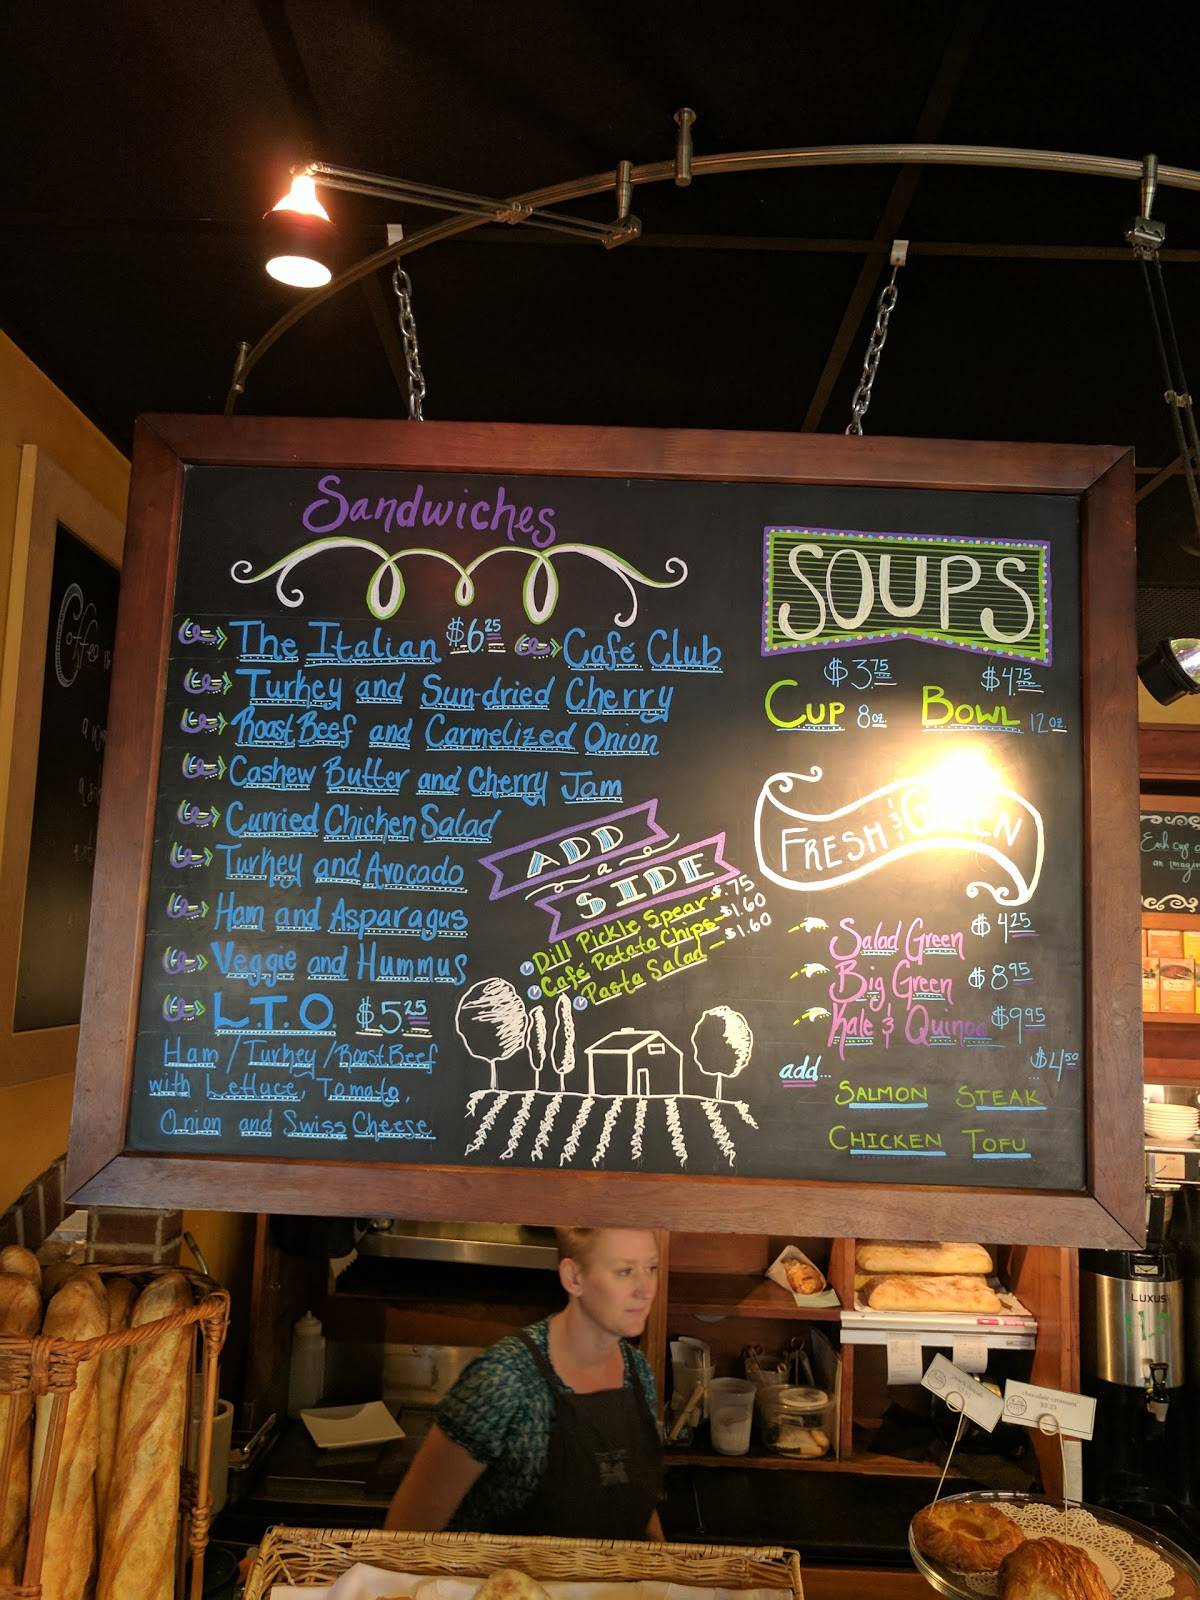 Sandwiches
The Italian $6.25 Café Club
Turkey and Sun-dried Cherry
Roast Beef and Carmelized Onion
Cashew Butter and Cherry Jam
Curried Chicken Salad
Turkey and Avocado
Ham and Asparagus
Veggie and Hummus
L.T.O. $5.25
Ham / Turkey / Roast Beef
with Lettuce, Tomato,
Onion and Swiss Cheese
ADD
a
SIDE
Dill Pickle Spear - $.75
Café Potato Chips - $1.60
Pasta Salad - $1.60
SOUPS
$3.75 $4.75
CUP 8oz. BOWL 12oz.
FRESH & GREEN
Salad Green $4.25
Big Green $8.95
Kale & Quinoa $9.95
add... $4.50
SALMON STEAK
CHICKEN TOFU
Coffee
LUXUS
chocolate croissant
$3.25